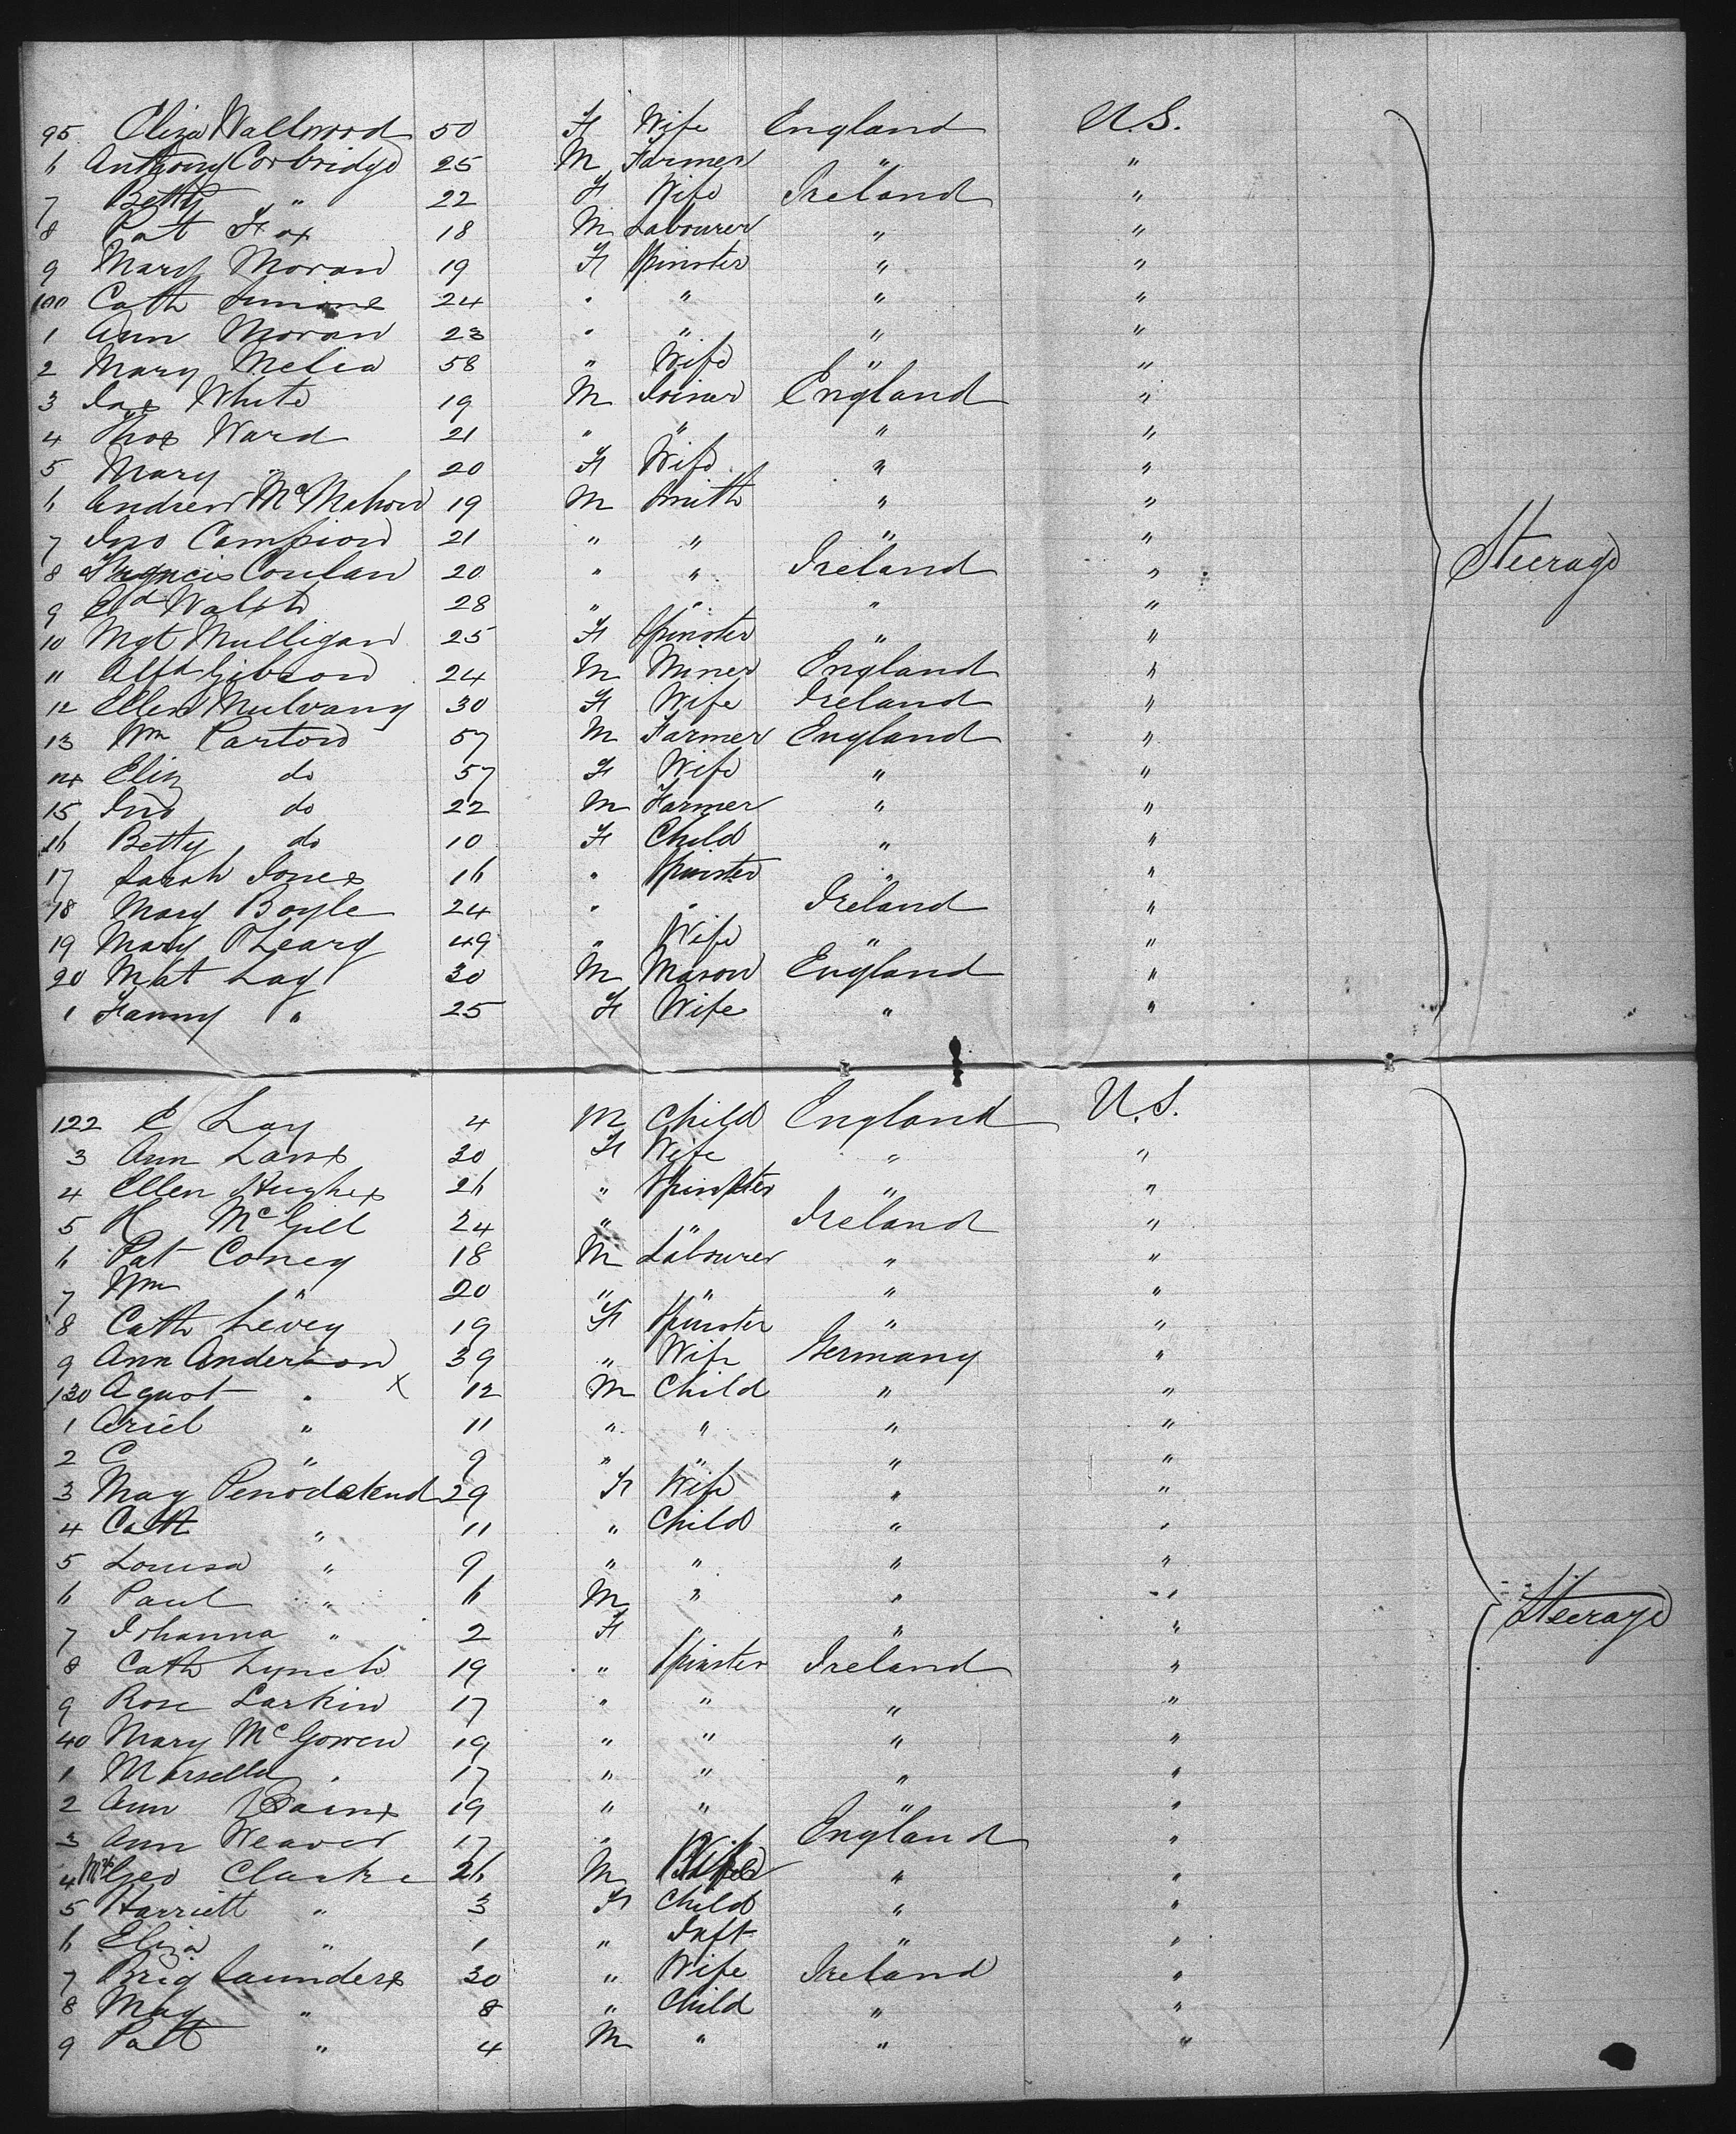 95 Eliza Wallwood 50 F Wife England U.S.
6 Anthony Corbridge 25 M Farmer " "
7 Betty " 22 F Wife Ireland "
8 Pat Fox 18 M Labourer " "
9 Mary Moran 19 F Spinster " "
100 Cath 24 " " " "
1 Ann Moran 23 " " " "
2 Mary Melia 58 " Wife " "
3 Jas White 19 M Joiner England "
4 Thos Ward 21 " " " "
5 Mary " 20 F Wife " "
6 Andrew McMahon 19 M Smith " "
7 Jno Campion 21 " " " "
8 Francis Conlan 20 " " Ireland "
9 Ed Walsh 28 " " " "
10 Mgt Mulligan 25 F Spinster " "
11 Alfd Gibson 24 M Miner England "
12 Ellen Mulvany 30 F Wife Ireland "
13 Wm Parton 57 M Farmer England "
14 Eliz do 57 F Wife " "
15 Jno do 22 M Farmer " "
16 Betty do 10 F Child " "
17 Sarah Jones 16 " Spinster " "
18 Mary Boyle 24 " " Ireland "
19 Mary O'Leary 49 " Wife " "
20 Mat Lay 30 M Mason England "
1 Fanny " 25 F Wife " "
Steerage
122 E Lay 4 M Child England U.S.
3 Ann Laws 30 F Wife " "
4 Ellen Hughes 26 " Spinster " "
5 K McGill 24 " " Ireland "
6 Pat Coney 18 M Labourer " "
7 Wm " 20 " " " "
8 Cath Levey 19 F Spinster " "
9 Ann Anderson 39 " Wife Germany "
130 Agust " x 12 M Child " "
1 Ariel " 11 " " " "
2 C " 9 " " " "
3 May 29 F Wife " "
4 Cath " 11 " Child " "
5 Louisa " 9 " " " "
6 Paul " 6 M " " "
7 Johanna " 2 F " " "
8 Cath Lynch 19 " Spinster Ireland "
9 Rose Larkin 17 " " " "
40 Mary McGowen 19 " " " "
1 Marsella " 17 " " " "
2 Ann 19 " " " "
3 Ann Weaver 17 " " England "
4 Mrs Geo Clarke 26 M Wife " "
5 Harriett " 3 F Child " "
6 Eliza " 1 " Inft " "
7 Brig Saunders 30 " Wife Ireland "
8 May " 8 " Child " "
9 Patt " 4 M " " "
Steerage